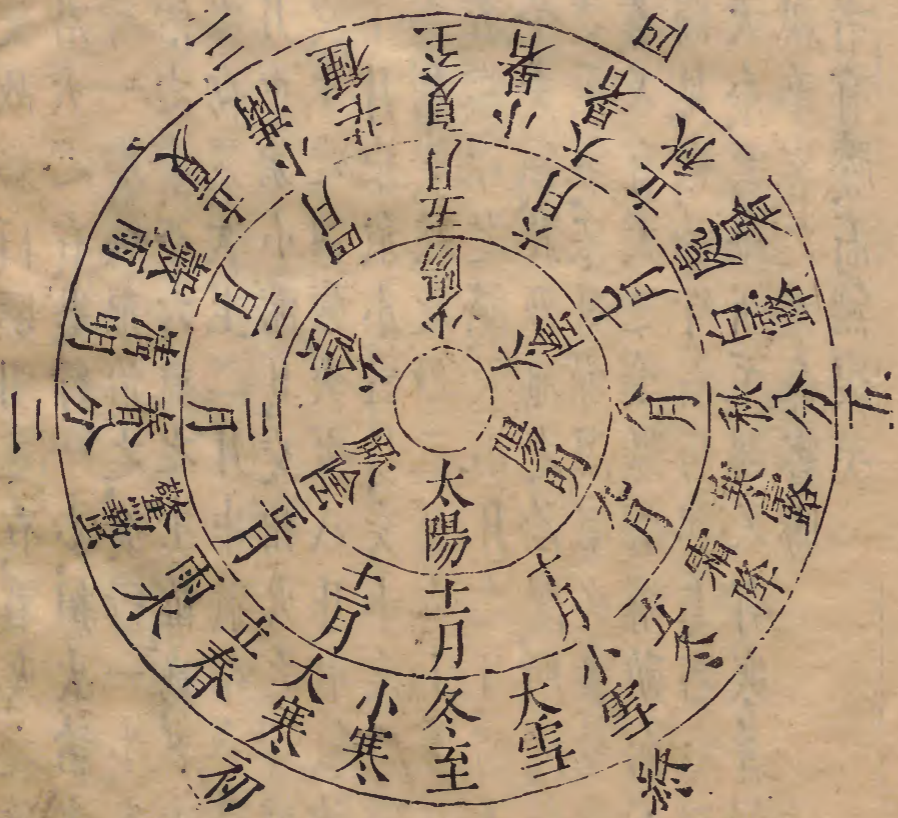 初
二
三
四
五
終
冬至
小寒
大寒
立春
雨水
驚蟄
春分
清明
穀雨
立夏
小滿
芒種
夏至
小暑
大暑
立秋
處暑
白露
秋分
寒露
霜降
立冬
小雪
大雪
十一月
十二月
正月
二月
三月
四月
五月
六月
七月
八月
九月
十月
太陽
厥陰
少陰
少陽
太陰
陽明